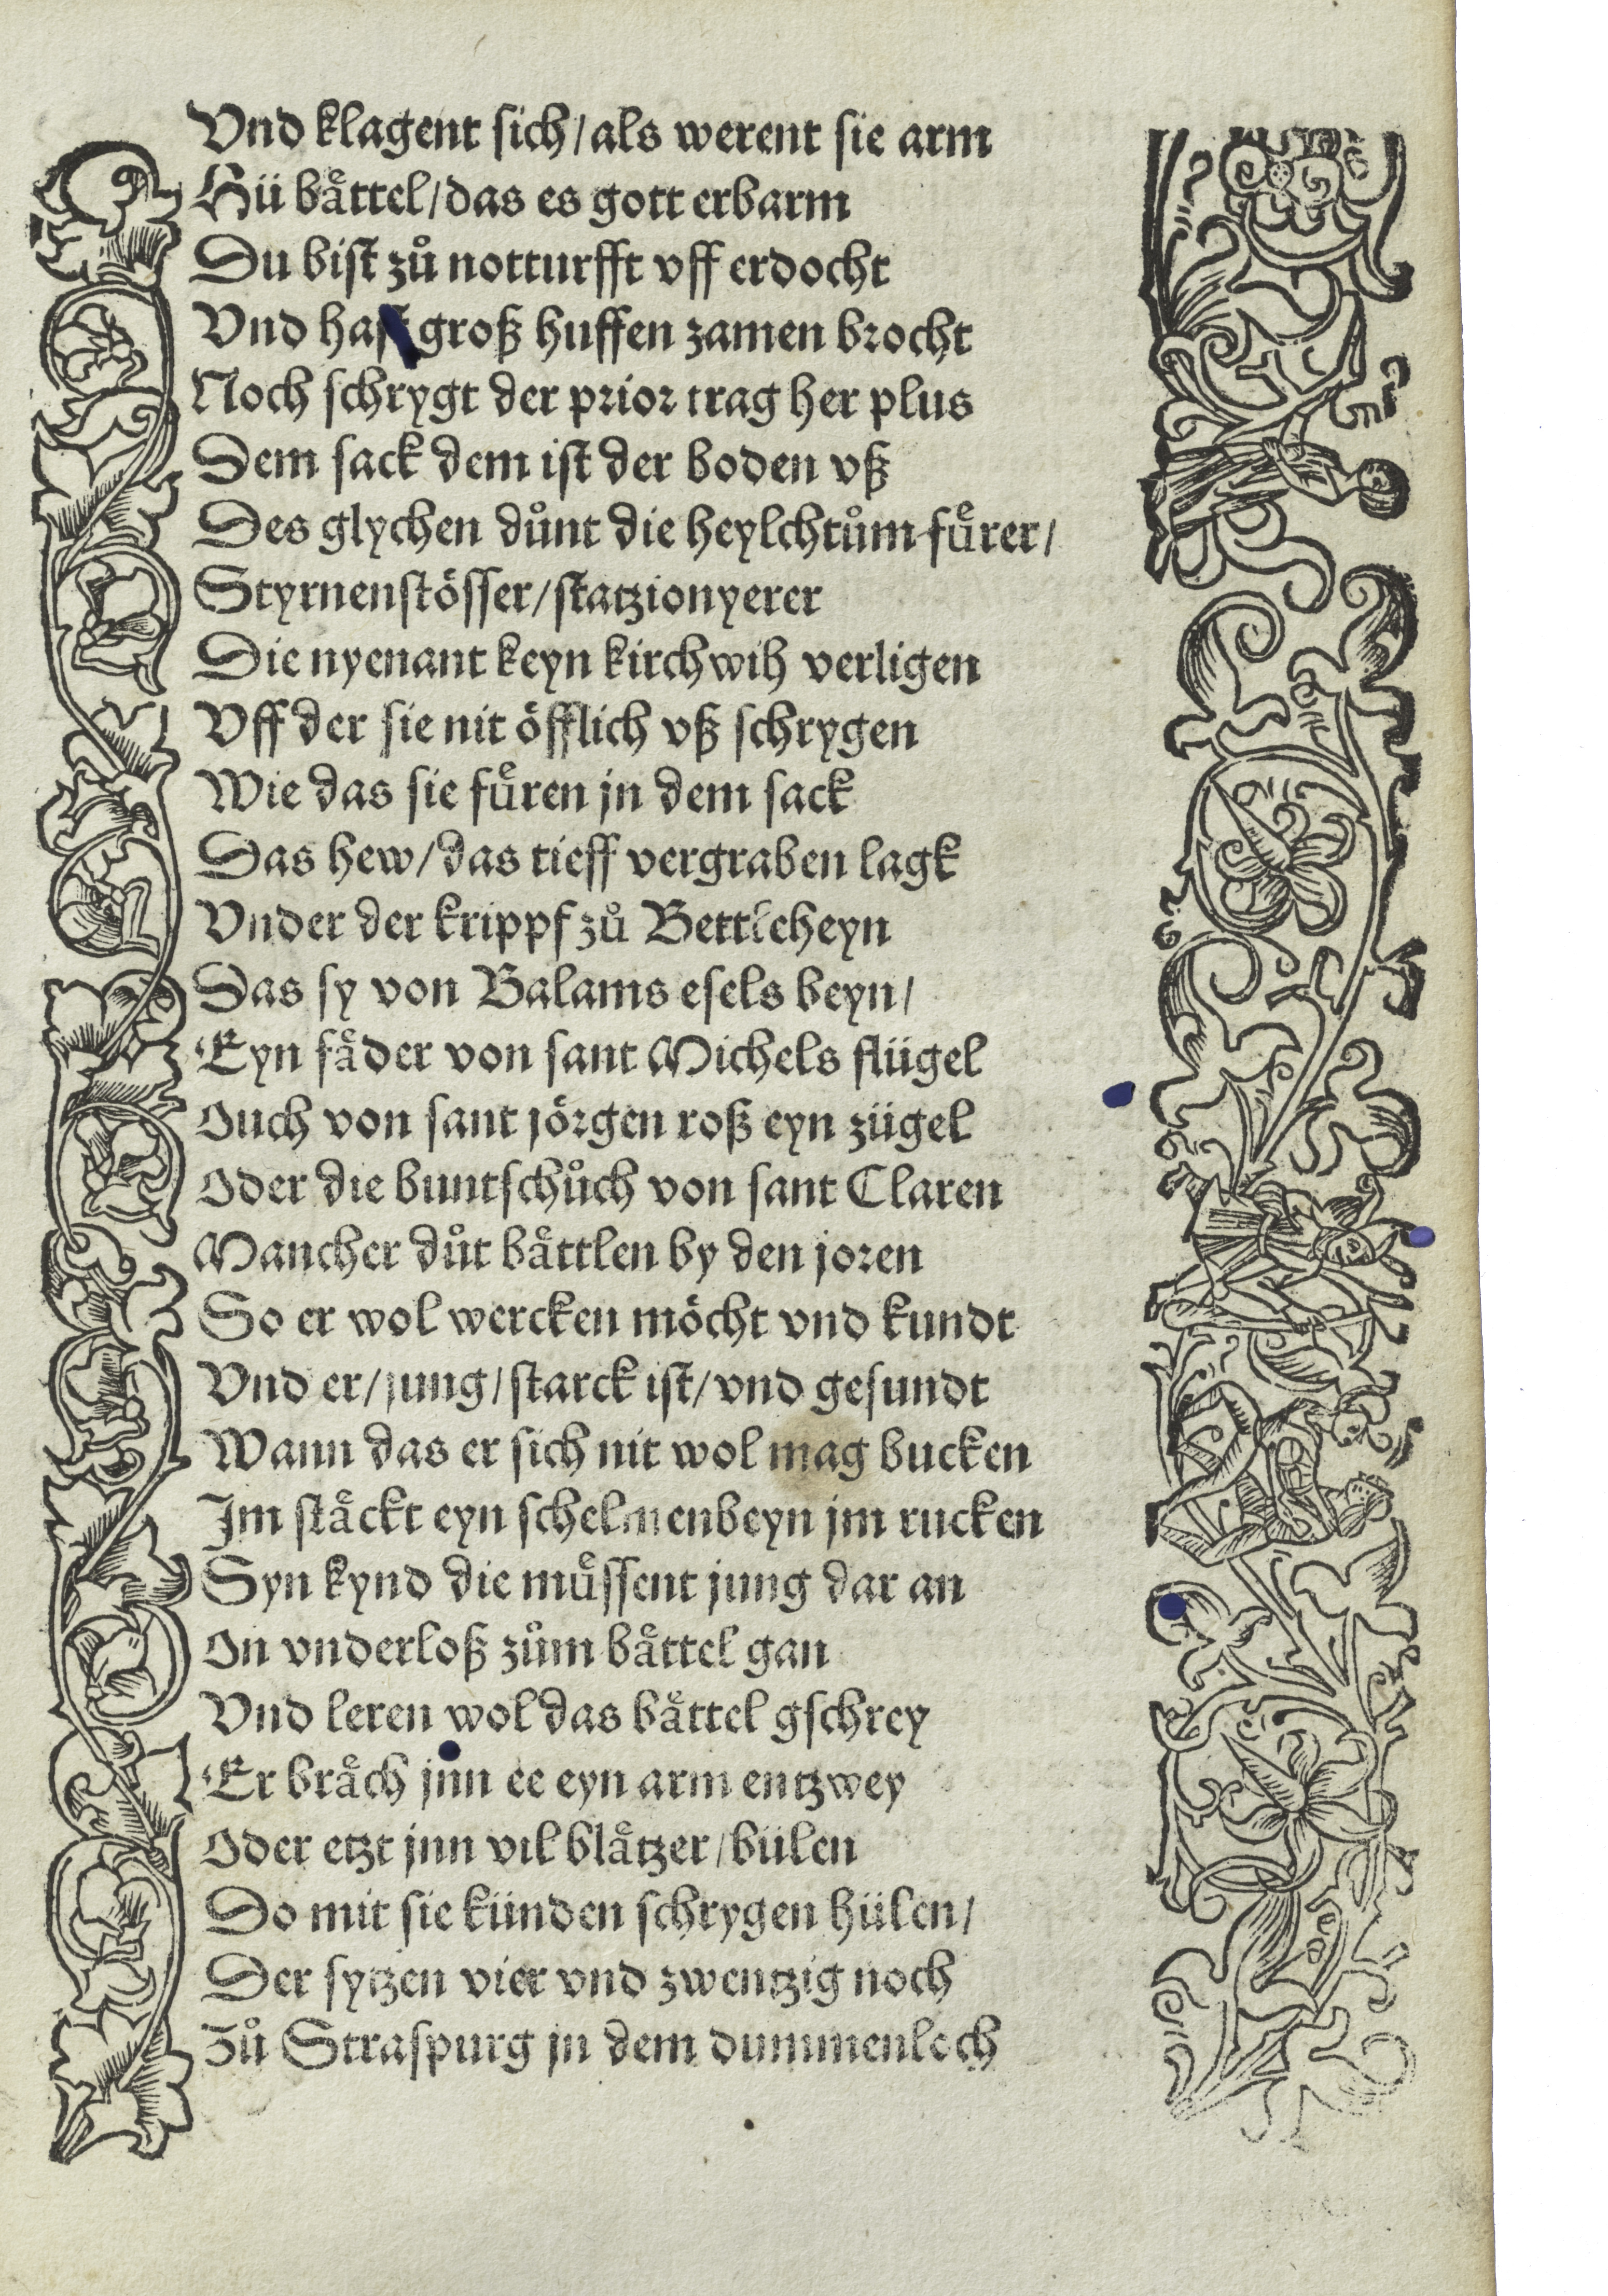 Vnd klagent sich / als werent sie arm
Hü baͤttel / das es gott erbarm
Du bist zuͦ notturfft vff erdocht
Vnd hast groß huffen zamen brocht
Noch schrygt der prior trag her plus
Dem sack dem ist der boden vß
Des glychen duͦnt die heylchtuͦm fuͤrer /
Styrnenstoͤsser / statzionyerer
Die nyenant keyn kirchwih verligen
Vff der sie nit oͤfflich vß schrygen
Wie das sie fuͤren jn dem sack
Das hew / das tieff vergraben lagk
Vnder der krippf zuͦ Bettleheyn
Das sy von Balams esels beyn /
Eyn faͤder von sant Michels flügel
Ouch von sant joͤrgen roß eyn zügel
Oder die buntschuͦch von sant Claren
Mancher duͦt baͤttlen by den joren
So er wol wercken moͤcht vnd kundt
Vnd er / jung / starck ist / vnd gesundt
Wann das er sich nit wol mag bucken
Im staͤckt eyn schelmenbeyn jm rucken
Syn kynd die muͤssent jung dar an
On vnderloß zuͦm baͤttel gan
Vnd leren wol das baͤttel gschrey
Er braͤch jnn ee eyn arm entzwey
Oder etzt jnn vil blaͤtzer / bülen
Do mit sie künden schrygen hülen /
Der sytzen vier vnd zwentzig noch
Zuͦ Straspurg jn dem dummenloch